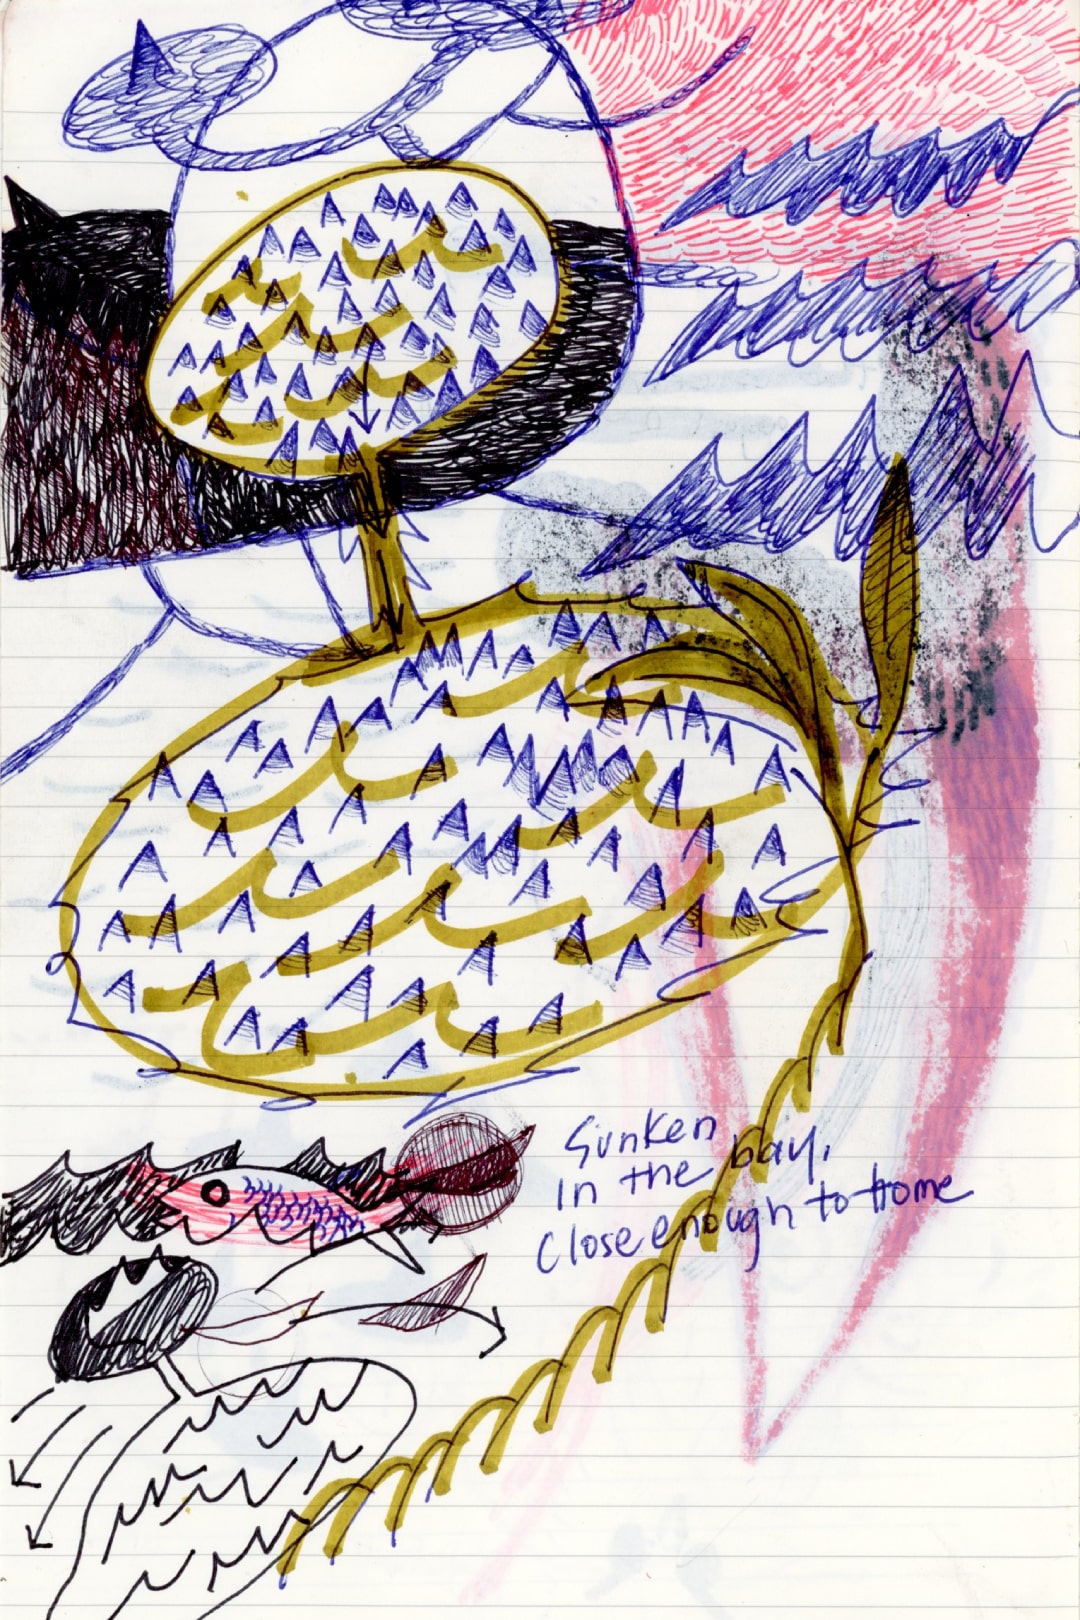 Sunken
in the bay,
close enough to home